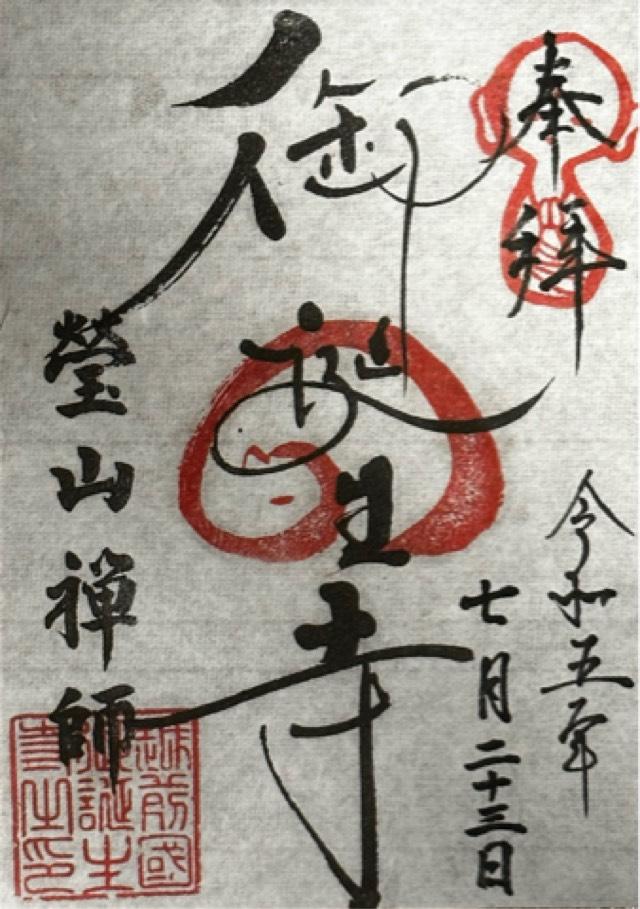 奉拝
令和五年
七月二十三日
御誕生寺
瑩山禅師
越前國
御誕生
寺之印